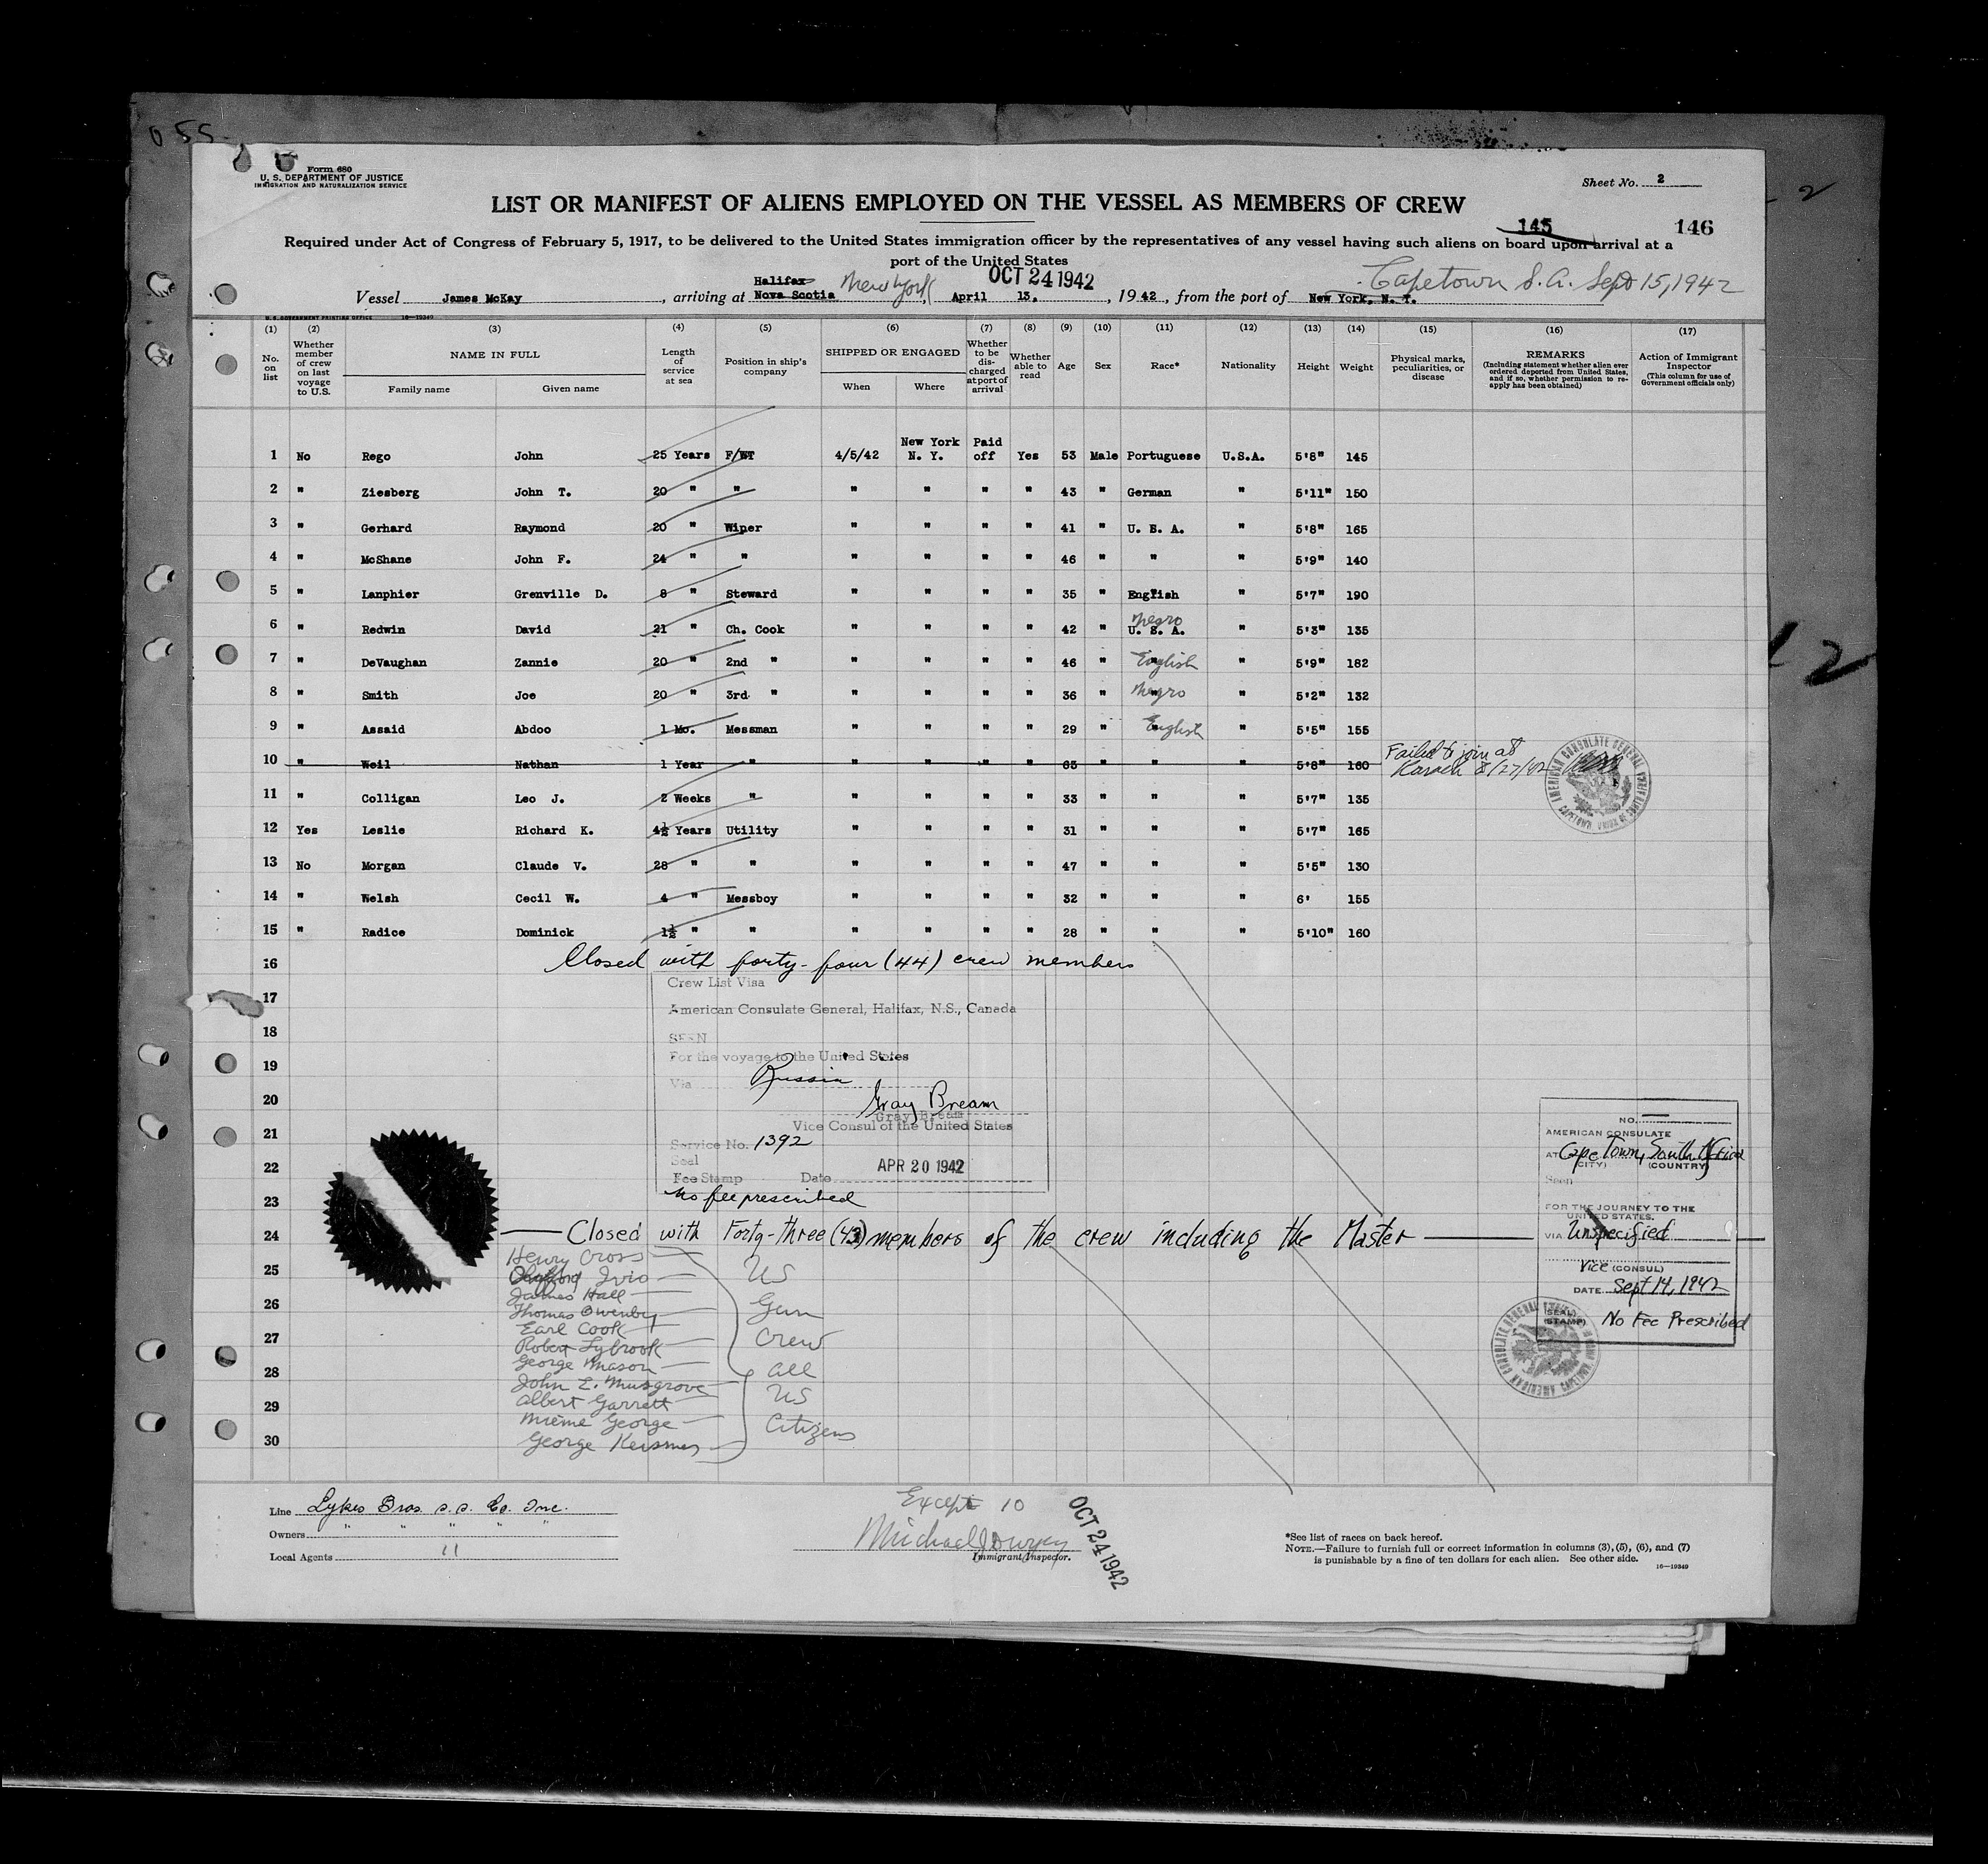 055
Form 680
U. S. DEPARTMENT OF JUSTICE
IMMIGRATION AND NATURALIZATION SERVICE
Sheet No. 2
2
LIST OR MANIFEST OF ALIENS EMPLOYED ON THE VESSEL AS MEMBERS OF CREW
145 146
Required under Act of Congress of February 5, 1917, to be delivered to the United States immigration officer by the representatives of any vessel having such aliens on board upon arrival at a
port of the United States
Halifax New York OCT 24 1942 Capetown S.A. Sept 15, 1942
Vessel James McKay, arriving at Nova Scotia April 13, , 1942, from the port of New York, N. Y.
U. S. GOVERNMENT PRINTING OFFICE 16—19349
(1) (2) (3) (4) (5) (6) (7) (8) (9) (10) (11) (12) (13) (14) (15) (16) (17)
No. on list
Whether member of crew on last voyage to U.S.
NAME IN FULL
Family name Given name
Length of service at sea
Position in ship's company
SHIPPED OR ENGAGED
When Where
Whether to be discharged at port of arrival
Whether able to read
Age
Sex
Race*
Nationality
Height
Weight
Physical marks, peculiarities, or disease
REMARKS
(Including statement whether alien ever ordered deported from United States, and if so, whether permission to reapply has been obtained)
Action of Immigrant Inspector
(This column for use of Government officials only)
1 No Rego John 25 Years F/WT 4/5/42 New York N. Y. Paid off Yes 53 Male Portuguese U.S.A. 5'8" 145
2 " Ziesberg John T. 20 " " " " " " 43 " German " 5'11" 150
3 " Gerhard Raymond 20 " Wiper " " " " 41 " U. S. A. " 5'8" 165
4 " McShane John F. 24 " " " " " " 46 " " " 5'9" 140
5 " Lanphier Grenville D. 8 " Steward " " " " 35 " English " 5'7" 190
6 " Redwin David 21 " Ch. Cook " " " " 42 " Negro U. S. A. " 5'3" 135
7 " DeVaughan Zannie 20 " 2nd " " " " " 46 " English " 5'9" 182
8 " Smith Joe 20 " 3rd " " " " " 36 " Negro " 5'2" 132
9 " Assaid Abdoo 1 Mo. Messman " " " " 29 " English " 5'5" 155
10 " Weil Nathan 1 Year " " " " " 65 " " " 5'8" 160 Failed to join at Karachi 8/27/42
AMERICAN CONSULATE GENERAL CAPETOWN, UNION OF SOUTH AFRICA
11 " Colligan Leo J. 2 Weeks " " " " " 33 " " " 5'7" 135
12 Yes Leslie Richard K. 4½ Years Utility " " " " 31 " " " 5'7" 165
13 No Morgan Claude V. 28 " " " " " " 47 " " " 5'5" 130
14 " Welsh Cecil W. 4 " Messboy " " " " 32 " " " 6' 155
15 " Radice Dominick 1½ " " " " " " 28 " " " 5'10" 160
16 Closed with forty-four (44) crew members
17
18
19
20
21
22
23
Crew List Visa
American Consulate General, Halifax, N.S., Canada
SEEN
For the voyage to the United States
Via Russia
Gray Bream
Gray Bream
Vice Consul of the United States
Service No. 1392
Seal APR 20 1942
Fee Stamp Date
No fee prescribed
24 Closed with Forty-three (43) members of the crew including the Master
25
26
27
28
29
30
Henry Cross
Ivio
James Hall
Thomas Owenby
Earl Cook
Robert Lybrook
George Mason
John E. Musgrove
Albert Garrett
George
George
US
Gun
Crew
all
US
Citizens
NO.
AMERICAN CONSULATE
AT Cape Town, South Africa
(CITY) (COUNTRY)
Seen
FOR THE JOURNEY TO THE
UNITED STATES.
VIA Unspecified
Vice (CONSUL)
DATE Sept 14, 1942
(SEAL)
(STAMP) No Fee Prescribed
AMERICAN CONSULATE GENERAL
Line Lykes Bros. S.S. Co. Inc.
Owners " " " " "
Local Agents "
Except 10
Michael
Immigrant Inspector.
OCT 24 1942
*See list of races on back hereof.
NOTE.—Failure to furnish full or correct information in columns (3), (5), (6), and (7)
is punishable by a fine of ten dollars for each alien. See other side.
16—19349
2